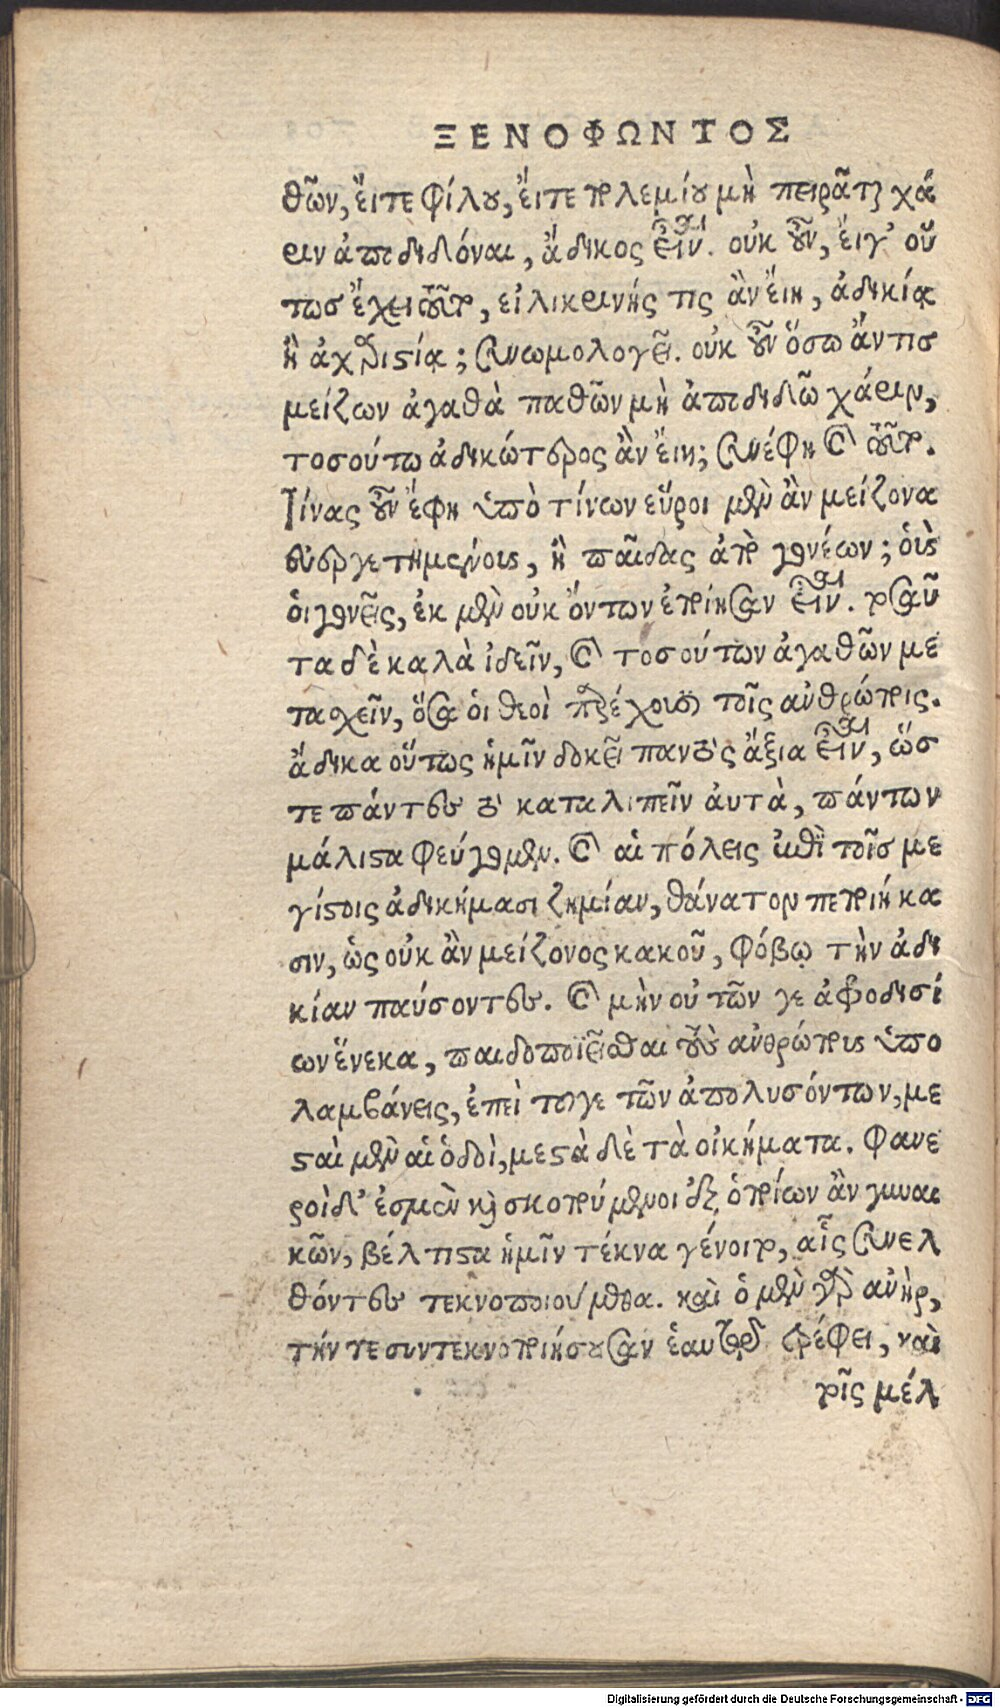 ΞΕΝΟΦΩΝΤΟΣ
θῶν, ἔιτε φίλου, ἔιτε πολεμίου μὴ πειρᾶται χά
ριν ἀποδιδόναι, ἄδικος εἶναι. οὐκ οὖν, ἔιγ' οὕ
τωσ ἔχει τοῦτο, εἰλικρινής τις ἂν ἔιη, ἀδικία
ἡ ἀχαριστία; συνωμολογεῖ. οὐκ οὖν ὅσω ἄν τισ
μείζων ἀγαθὰ παθῶν μὴ ἀποδιδῶ χάριν,
τοσούτω ἀδικώτερος ἂν ἔιη; συνέφη καὶ τοῦτο.
Τίνας οὖν ἔφη ὑπὸ τίνων εὕροιμεν ἂν μείζονα
εὐεργετημένους, ἢ παῖδας ἀπὸ γονέων; ὁυς
ὁι γονεῖς, ἐκ μὲν οὐκ ὄντων ἐποίησαν εἶναι. τοσαῦ
τα δὲ καλὰ ἰδεῖν, καὶ τοσούτων ἀγαθῶν με
τασχεῖν, ὅσα ὁι θεοὶ παρέχουσι τοῖς ἀνθρώποις.
ἅδικα οὕτως ἡμῖν δοκεῖ παντὸς ἄξια εἶναι, ὥσ
τε πάντες τὸ καταλιπεῖν ἀυτὰ, πάντων
μάλιστα φεύγομεν. καὶ αἱ πόλεις ἐπὶ τοῖσ με
γίστοις ἀδικήμασι ζημίαν, θάνατον πεποιήκα
σιν, ὡς οὐκ ἂν μείζονος κακοῦ, φόβῳ τὴν ἀδι
κίαν παύσοντες. καὶ μὴν οὐ τῶν γε ἀφροδισί
ων ἕνεκα, παιδοποιεῖσθαι τοὺς ἀνθρώπους ὑπο
λαμβάνεις, ἐπεὶ τούγε τῶν ἀπολυσόντων, με
σταὶ μὲν αἱ ὁδοὶ, μεστὰ δὲ τὰ οἰκήματα. Φανε
ροὶ δ' ἐσμὲν καὶ σκοπούμενοι ἐξ ὁποίων ἂν γυναι
κῶν, βέλτιστα ἡμῖν τέκνα γένοιτο, αἷς συνελ
θόντες τεκνοποιούμεθα. καὶ ὁ μὲν γὰρ ἀνὴρ,
τήν τε συντεκνοποιήσουσαν ἑαυτῷ τρέφει, καὶ
τοῖς μέλ
Digitalisierung gefördert durch die Deutsche Forschungsgemeinschaft - DFG